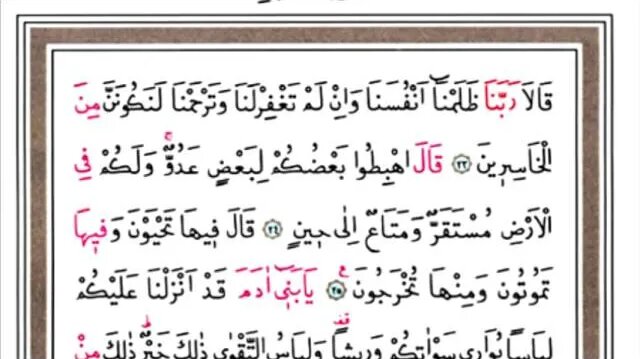 قَالَا رَبَّنَا ظَلَمْنَٓا اَنْفُسَنَا وَاِنْ لَمْ تَغْفِرْلَنَا وَتَرْحَمْنَا لَنَكُونَنَّ مِنَ
الْخَاسِرِينَ ﴿٢٣﴾ قَالَ اهْبِطُوا بَعْضُكُمْ لِبَعْضٍ عَدُوٌّۚ وَلَكُمْ فِي
الْاَرْضِ مُسْتَقَرٌّ وَمَتَاعٌ اِلٰى حِينٍ ﴿٢٤﴾ قَالَ فِيهَا تَحْيَوْنَ وَفِيهَا
تَمُوتُونَ وَمِنْهَا تُخْرَجُونَ۟ ﴿٢٥﴾ يَابَنِٓي اٰدَمَ قَدْ اَنْزَلْنَا عَلَيْكُمْ
لِبَاسًا يُوَارِي سَوْاٰتِكُمْ وَرِيشًاۜ وَلِبَاسُ التَّقْوٰى ذٰلِكَ خَيْرٌۜ ذٰلِكَ مِنْ